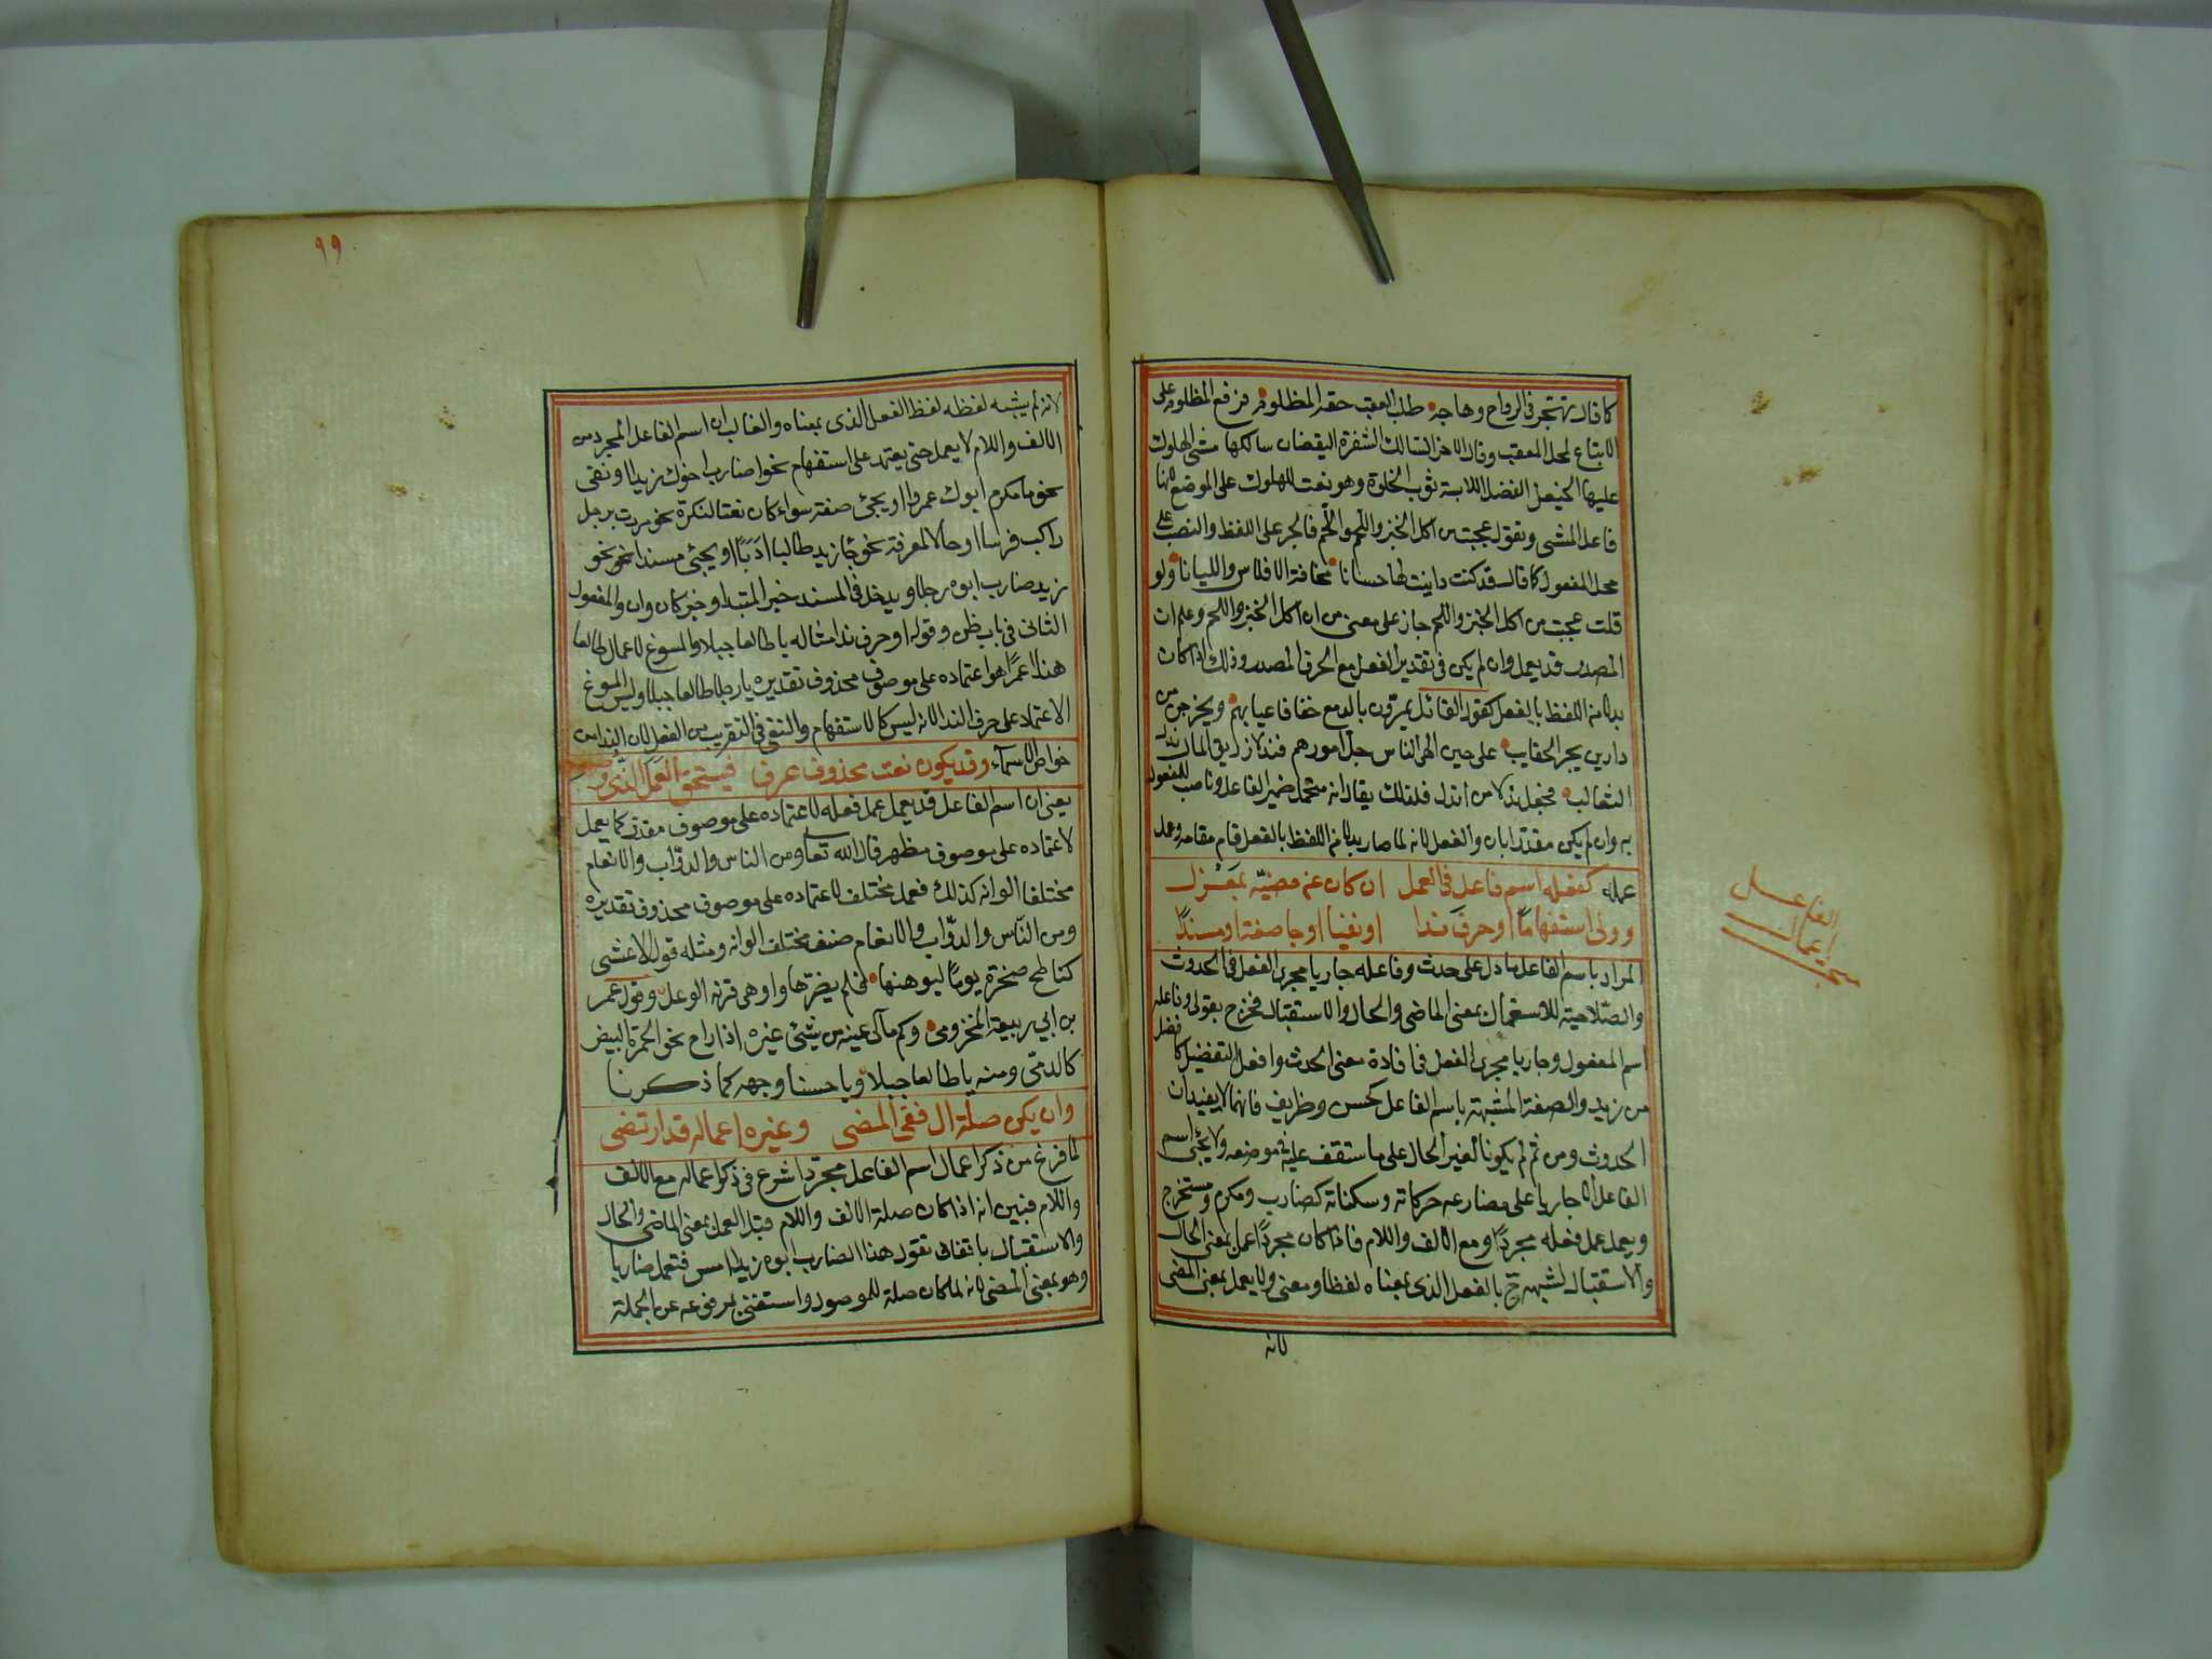 كما قال تهجر في الرواح وهاجه طلب المعقب حقه المظلوم فرفع المظلوم على
الاتباع لمحل المعقب وقال الاخر السالك الثغرة اليقضان سالكها مشى الهلوك
عليها الخيعل الفضل اللابسة ثوب الخلوة وهو نعت للهلوك على الموضع لانها
فاعل المشى وتقول عجبت من اكل الخبز واللحم واللحم فالجر على اللفظ والنصب على
محل المفعول كما قال قد كنت داينت بها حسانا مخافة الافلاس والليانا ولو
قلت عجبت من اكل الخبز واللحم جاز على معنى من ان اكل الخبز واللحم وعلم ان
المصدر قد يعمل وان لم يكن في تقدير الفعل مع الحرف المصدر وذلك اذا كان
بدلا من اللفظ بالفعل كقول القائل يمرون بالدمع خفافا عيابهم ويخرجن من
دارين بجر الحقايب على حين الهى الناس جل امورهم فندلا زريق المال ندل
الثعالب فجعل ندلا من اندل فلذلك يقال انه متحمل ضمير الفاعل وناصب للمفعول
به وان لم يكن مقدرا بان والفعل لانه لما صار بدلا من اللفظ بالفعل قام مقامه وعمل
عمله كفعله اسم فاعل في العمل ان كان عن مضيه بمعزل
وولى استفهاما او حرف ندا او نفيا او جا صفة او مسندا
المراد باسم الفاعل ما دل على حدث وفاعله جاريا مجرى الفعل في الحدوث
والصلاحية للاستعمال بمعنى الماضى والحال والاستقبال فخرج بقولى وفاعله
اسم المفعول وجاريا مجرى الفعل في افادة معنى الحدث وافعل التفضيل كافضل
من زيد والصفة المشبهة باسم الفاعل كحسن وظريف فانهما لا يفيدان
الحدوث ومن ثم لم يكونا لغير الحال على ما ستقف عليه في موضعه ولا يجئ اسم
الفاعل الا جاريا على مضارعه حركاته وسكناته كضارب ومكرم ومستخرج
ويعمل عمل فعله مجردا ومع الالف واللام فاذا كان مجردا عمل بمعنى الحال
والاستقبال لشبهه ح بالفعل الذى بمعناه لفظا ومعنى ولا يعمل بمعنى المضى
لانه
الفاعل
اعمال
٩٩
لانه لم يشبه لفظه لفظ الفعل الذى بمعناه والغالب ان اسم الفاعل المجرد من
الالف واللام لا يعمل حتى يعتمد على استفهام نحو اضارب اخوك زيدا او نفى
نحو ما مكرم ابوك عمروا او يجئ صفة سواء كان نعتا لنكرة نحو مررت برجل
راكب فرسا او حالا لمعرفة نحو جا زيد طالبا ادبا او يجئ مسندا نحو نحو
زيد ضارب ابوه رجلا ويدخل في المسند خبر المبتدا وخبر كان وان والمفعول
الثانى في باب ظن وقوله او حرف ندا مثاله يا طالعا جبلا والمسوغ لاعمال طالعا
هذا العمل هو اعتماده على موصوف محذوف تقديره يا رجلا طالعا جبلا وليس المسوغ
الاعتماد على حرف الندا لانه ليس كالاستفهام والنفى في التقريب من الفعل لان الندا من
خواص الاسماء وقد يكون نعت محذوف عرف فيستحق العمل الذى وصف
يعنى ان اسم الفاعل قد يعمل عمل فعله لاعتماده على موصوف مقدر كما يعمل
لاعتماده على موصوف مظهر قال الله تعا ومن الناس والدواب والانعام
مختلفا الوانه كذلك فعمل مختلف لاعتماده على موصوف محذوف تقديره
ومن الناس والدواب والانعام صنف مختلف الوانه ومثله قول الاعشى
كناطح صخرة يوما ليوهنها فلم يضرها واوهى قرنه الوعل وقول عمر
بن ابي ربيعة المخزومى وكم مآلى عينيه من شئ غيره اذا راح نحو الجمرة البيض
كالدمى ومنه يا طالعا جبلا ويا حسنا وجهه كما ذكرنا
وان يكن صلة ال ففى المضى وغيره اعماله قد ارتضى
لما فرغ من ذكر اعمال اسم الفاعل مجردا شرع في ذكر اعماله مع الالف
واللام فبين انه اذا كان صلة الالف واللام قبل العمل بمعنى الماضى والحال
والاستقبال باتفاق تقول هذا الضارب ابوه زيدا امس فتعمل ضاربا
وهو بمعنى المضى لانه لما كان صلة للموصول واستغنى بمرفوعه عن الجملة